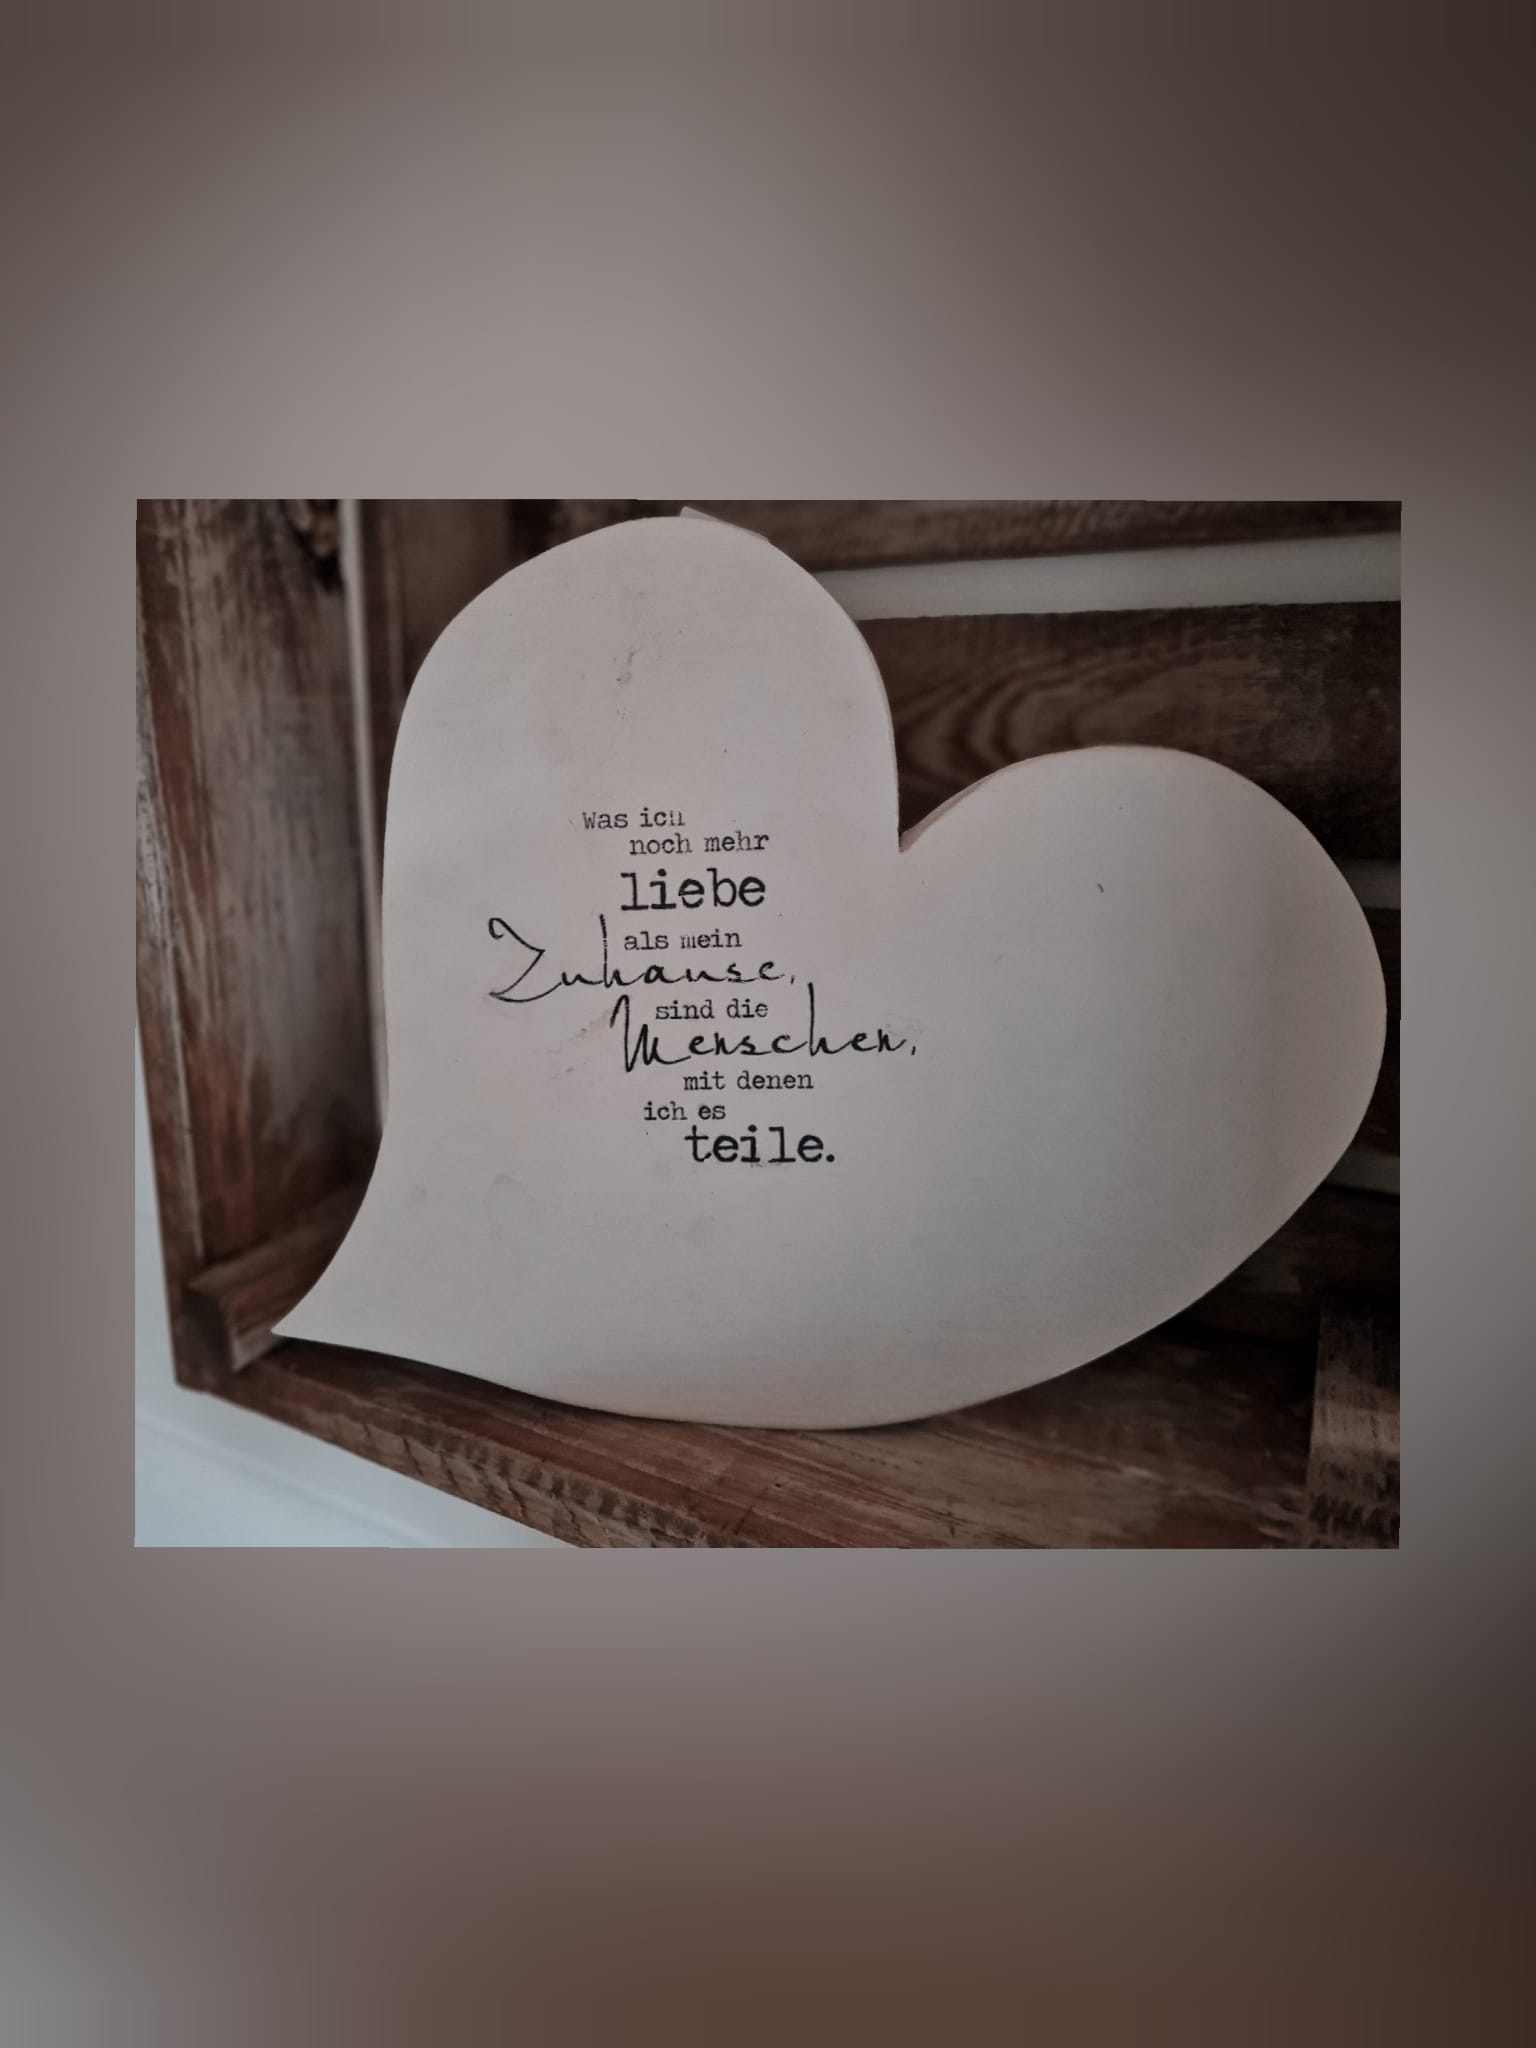 Was ich
noch mehr
liebe
als mein
Zuhause,
sind die
Menschen,
mit denen
ich es
teile.